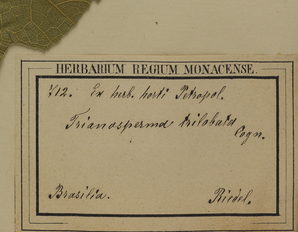 HERBARIUM REGIUM MONACENSE.
712. Ex herb. horti Petropol.
Trianosperma trilobata
Cogn.
Brasilia. Riedel.